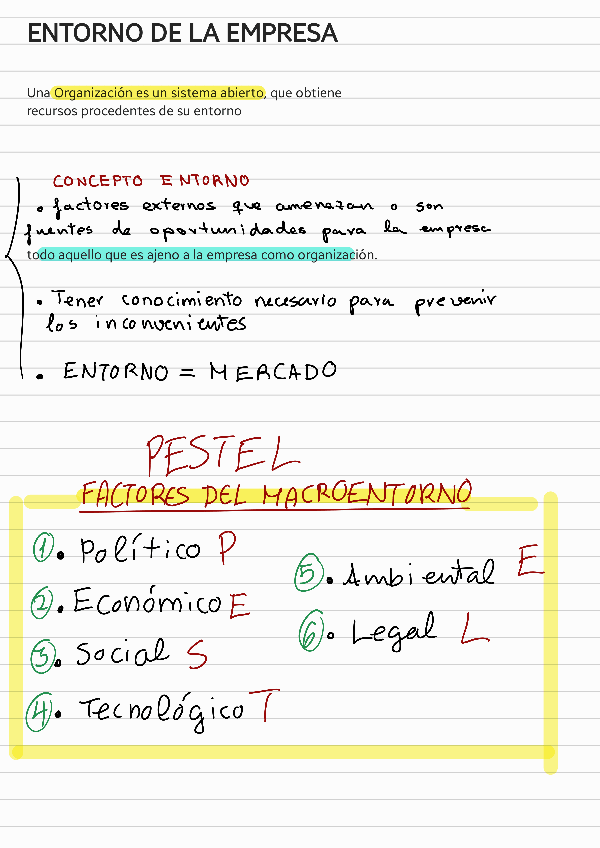 ENTORNO DE LA EMPRESA
Una Organización es un sistema abierto, que obtiene
recursos procedentes de su entorno
CONCEPTO ENTORNO
• factores externos que amenazan o son
fuentes de oportunidades para la empresa
todo aquello que es ajeno a la empresa como organización.
• Tener conocimiento necesario para prevenir
los inconvenientes
• ENTORNO = MERCADO
PESTEL
FACTORES DEL MACROENTORNO
1. Político P
2. Económico E
3. Social S
4. Tecnológico T
5. Ambiental E
6. Legal L